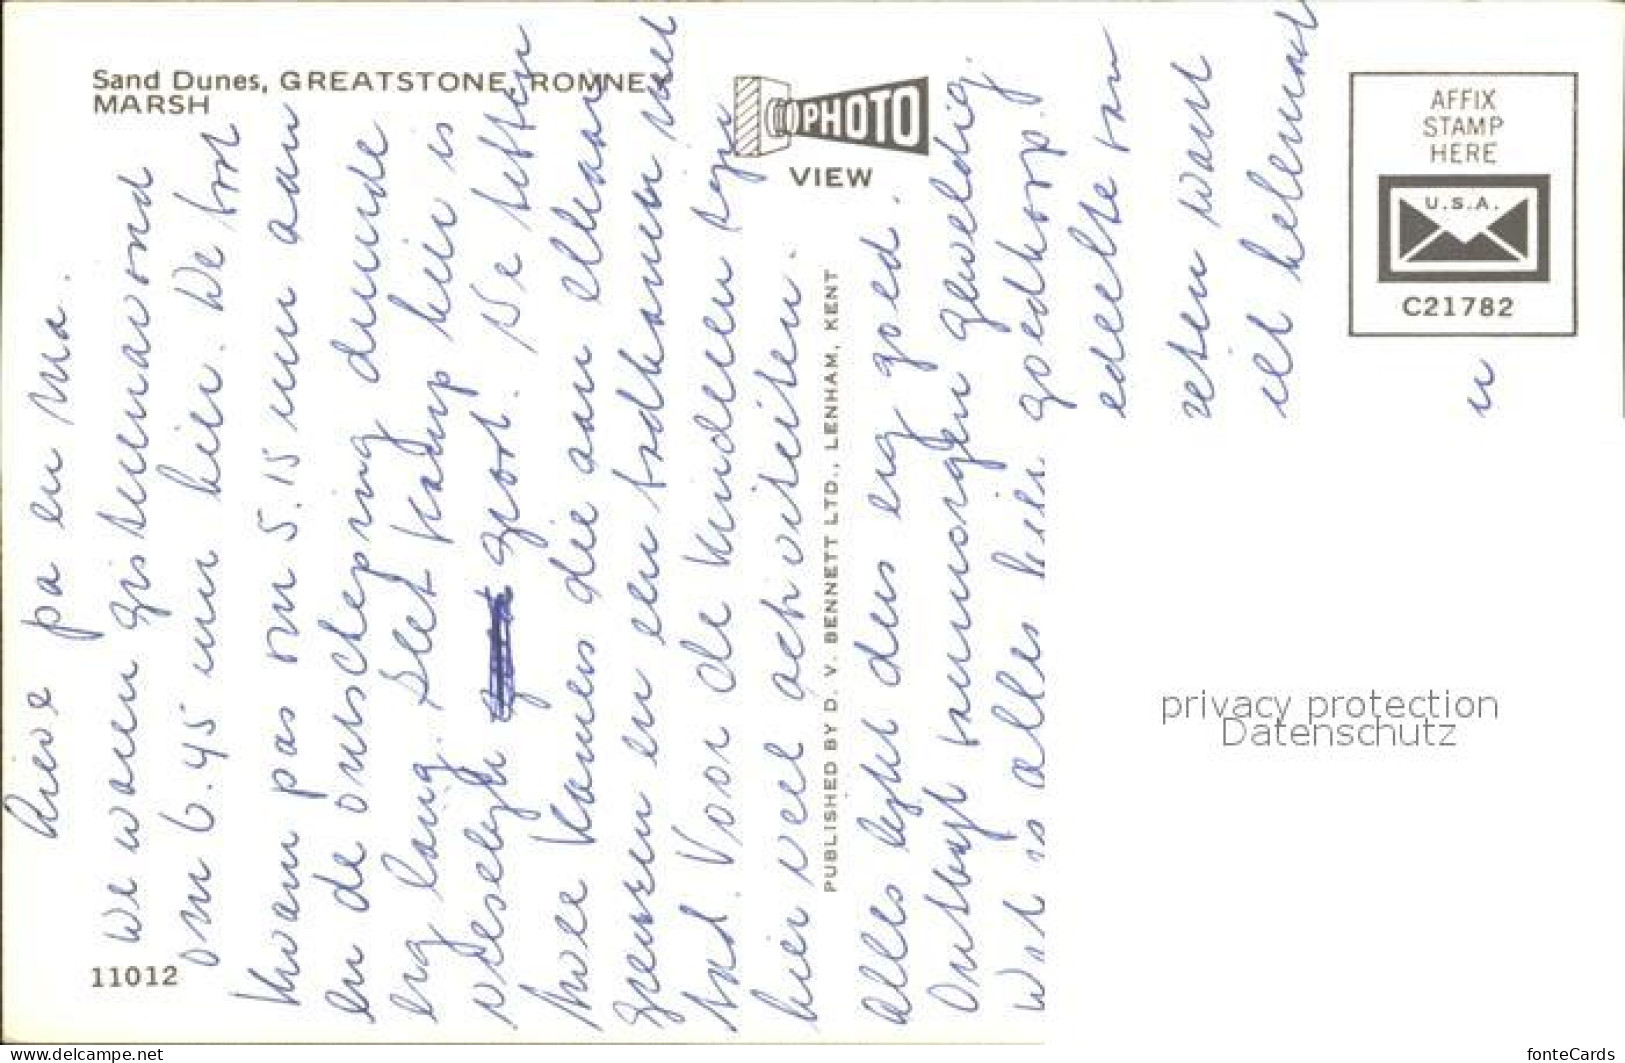 Sand Dunes, GREATSTONE, ROMNEY
MARSH
PHOTO
VIEW
AFFIX
STAMP
HERE
U.S.A.
C21782
Lieve pa en ma.
We waren gisterenavond
om 6.45 uur hier. We boot
kwam pas om 5.15 uur aan
en de ontscheping duurde
erg lang. Het kamp hier is
vreselijk groot. We hebben
twee kamers die aan elkaar
grenzen en een badkamer met
bad. Voor de kinderen zijn
hier veel activiteiten.
Alles lijkt dus erg goed.
Ontbijt vanmorgen geweldig.
Wat is alles hier goedkoop.
edeelte van
eten want
ik helemaal
n
PUBLISHED BY D. V. BENNETT LTD., LENHAM, KENT
11012
privacy protection
Datenschutz
https://www.delcampe.net
fonteCards